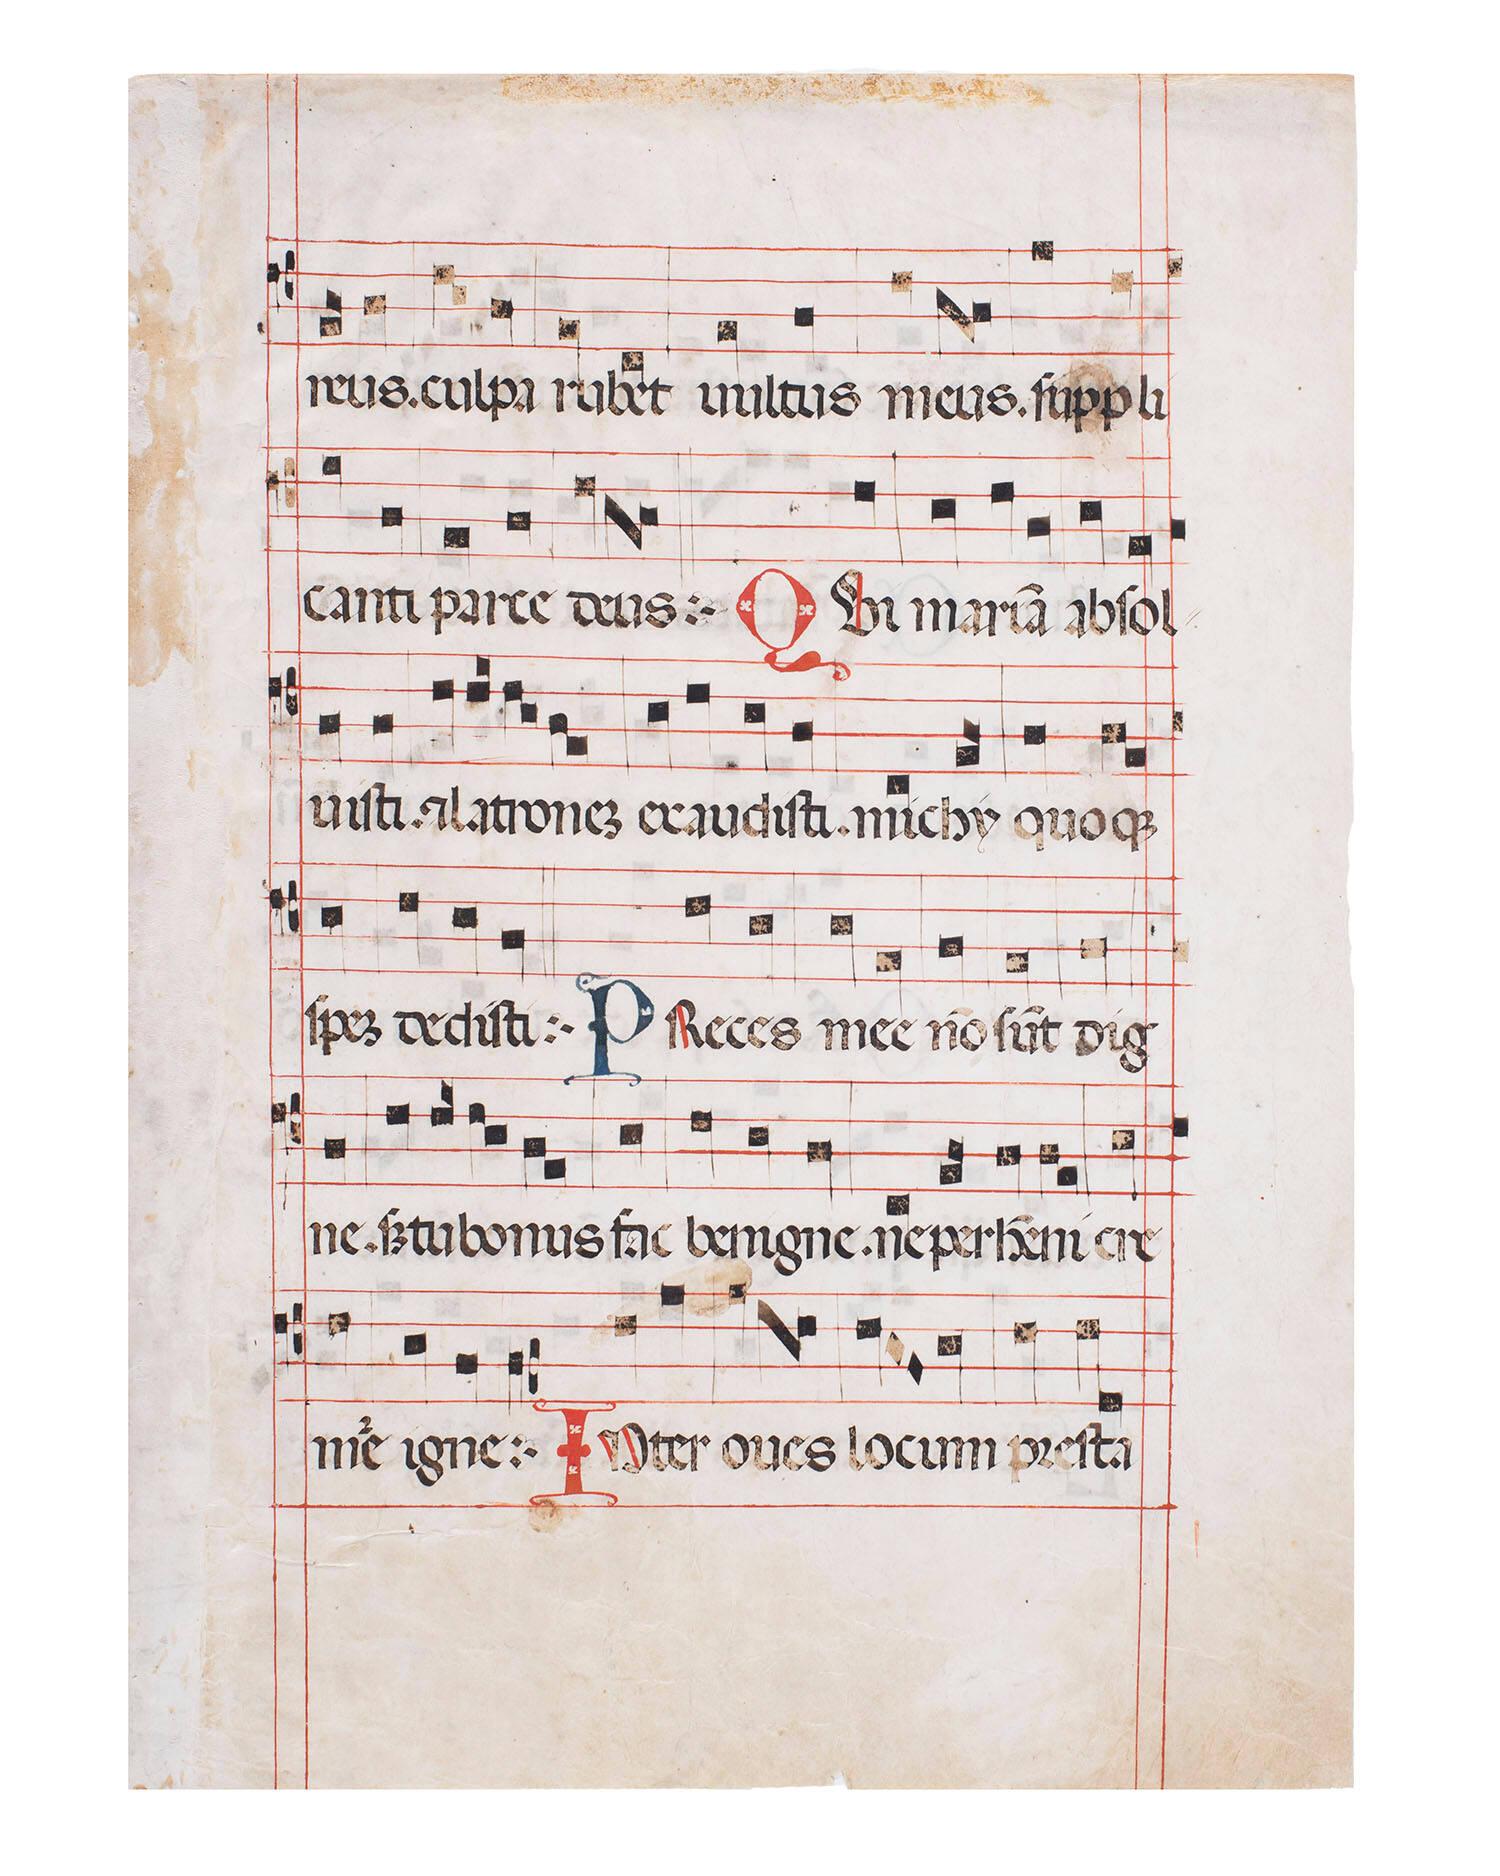 reus. culpa rubet uultus meus. suppli
canti parce deus: Q Vi mariā absol
uisti. & latronez exaudisti. michy quoqz
spez dedisti: P Reces mee nō sūt dig
ne. sz tu bonus fac benigne. ne perhēni cre
mer igne: I Nter oues locum presta